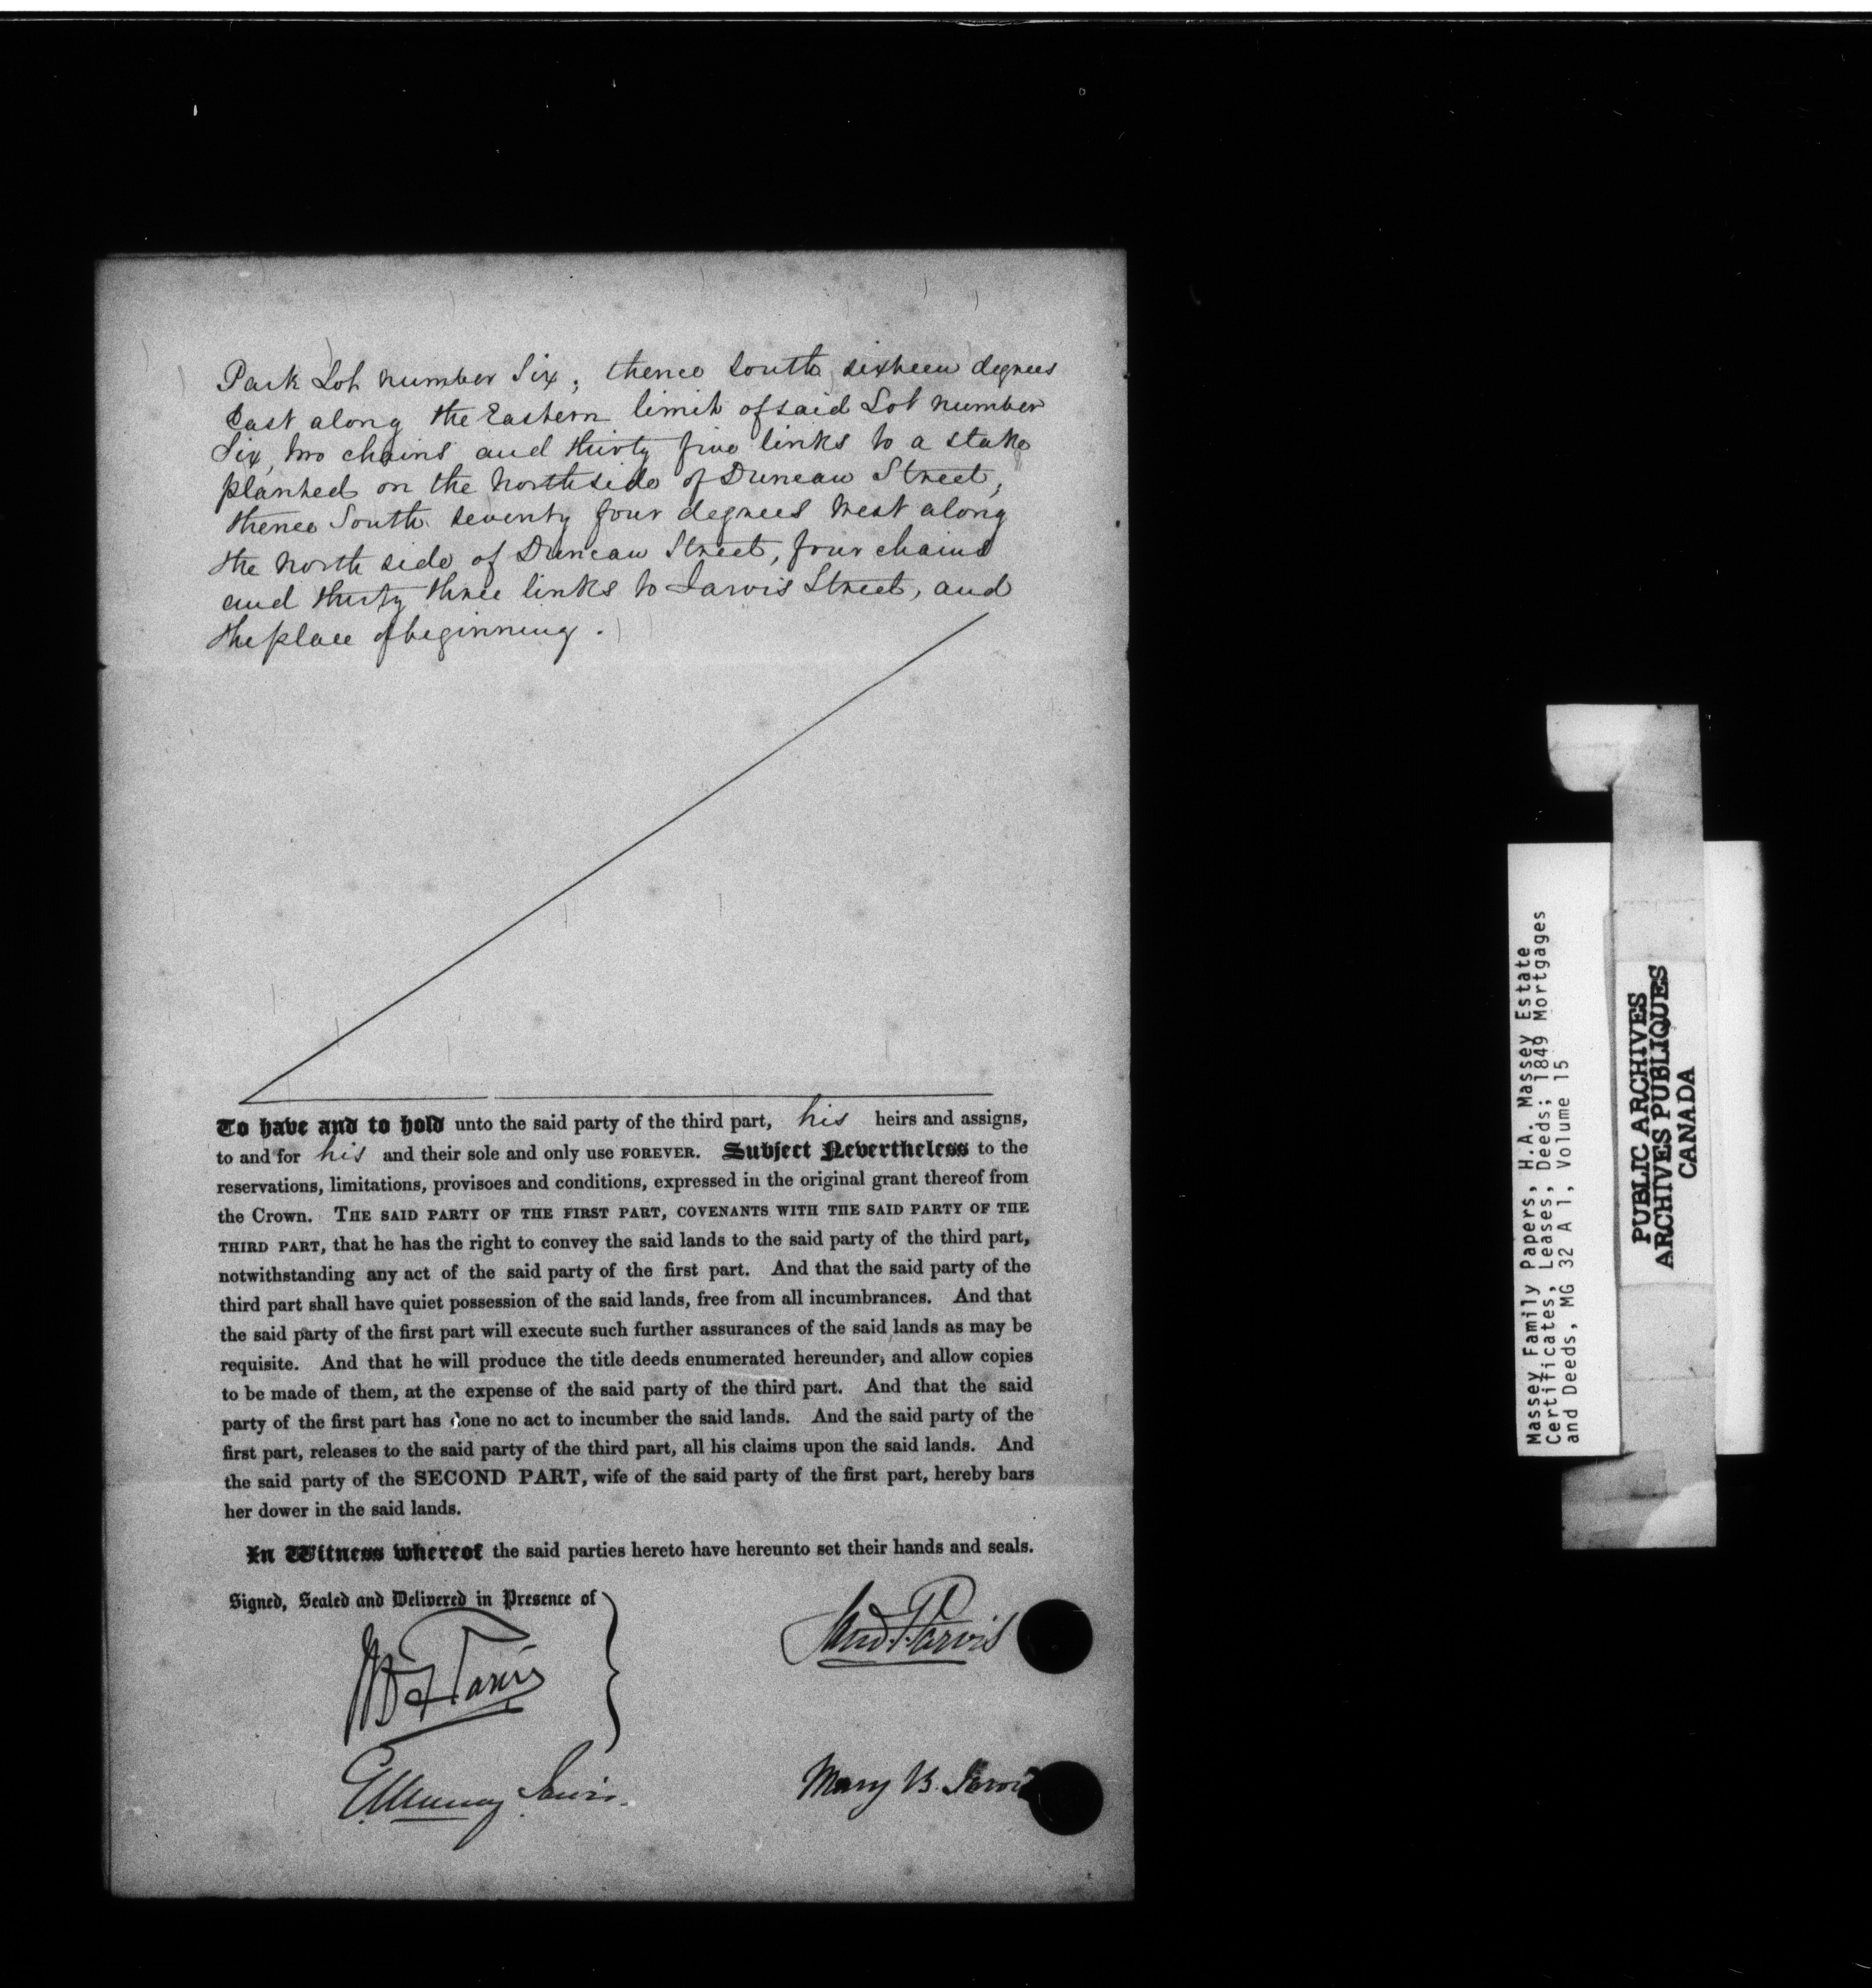 Park Lot number Six; thence South sixteen degrees
East along the Eastern limit of said Lot number
Six, two chains and thirty five links to a stake
planted on the North side of Duncan Street,
thence South seventy four degrees West along
the North side of Duncan Street, four chains
and thirty three links to Jarvis Street, and
the place of beginning.
To have and to hold unto the said party of the third part, his heirs and assigns,
to and for his and their sole and only use FOREVER. Subject Nevertheless to the
reservations, limitations, provisoes and conditions, expressed in the original grant thereof from
the Crown. THE SAID PARTY OF THE FIRST PART, COVENANTS WITH THE SAID PARTY OF THE
THIRD PART, that he has the right to convey the said lands to the said party of the third part,
notwithstanding any act of the said party of the first part. And that the said party of the
third part shall have quiet possession of the said lands, free from all incumbrances. And that
the said party of the first part will execute such further assurances of the said lands as may be
requisite. And that he will produce the title deeds enumerated hereunder, and allow copies
to be made of them, at the expense of the said party of the third part. And that the said
party of the first part has done no act to incumber the said lands. And the said party of the
first part, releases to the said party of the third part, all his claims upon the said lands. And
the said party of the SECOND PART, wife of the said party of the first part, hereby bars
her dower in the said lands.
In Witness whereof the said parties hereto have hereunto set their hands and seals.
Signed, Sealed and Delivered in Presence of
Jarvis
Jarvis
Murray Jarvis
Mary B. Jarvis
Massey Family Papers, H.A. Massey Estate
Certificates, Leases, Deeds; 1849 Mortgages
and Deeds, MG 32 A 1, Volume 15
PUBLIC ARCHIVES
ARCHIVES PUBLIQUES
CANADA